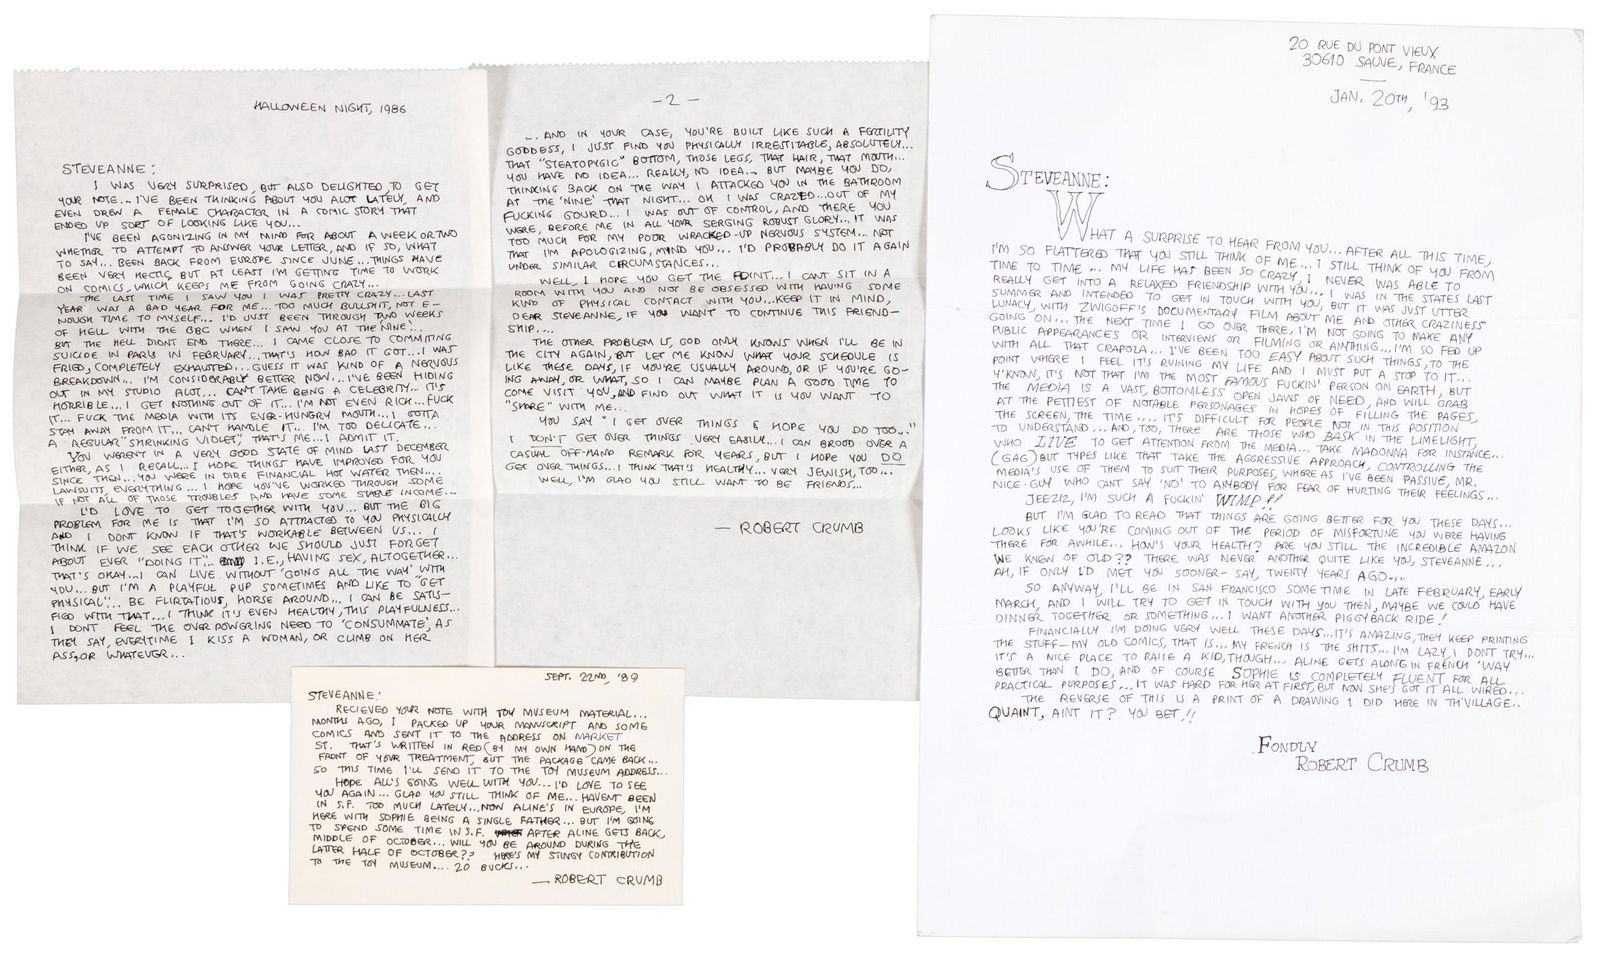 HALLOWEEN NIGHT, 1986
STEVEANNE:
I WAS VERY SURPRISED, BUT ALSO DELIGHTED, TO GET
YOUR NOTE... I'VE BEEN THINKING ABOUT YOU ALOT LATELY, AND
EVEN DREW A FEMALE CHARACTER IN A COMIC STORY THAT
ENDED UP SORT OF LOOKING LIKE YOU...
I'VE BEEN AGONIZING IN MY MIND FOR ABOUT A WEEK OR TWO
WHETHER TO ATTEMPT TO ANSWER YOUR LETTER, AND IF SO, WHAT
TO SAY... BEEN BACK FROM EUROPE SINCE JUNE... THINGS HAVE
BEEN VERY HECTIC, BUT AT LEAST I'M GETTING TIME TO WORK
ON COMICS, WHICH KEEPS ME FROM GOING CRAZY...
THE LAST TIME I SAW YOU I WAS PRETTY CRAZY... LAST
YEAR WAS A BAD YEAR FOR ME... TOO MUCH BULLSHIT, NOT E-
NOUGH TIME TO MYSELF... I'D JUST BEEN THROUGH TWO WEEKS
OF HELL WITH THE BBC WHEN I SAW YOU AT THE 'NINE'...
BUT THE HELL DIDNT END THERE... I CAME CLOSE TO COMMITING
SUICIDE IN PARIS IN FEBRUARY... THAT'S HOW BAD IT GOT... I WAS
FRIED, COMPLETELY EXHAUSTED... GUESS IT WAS KIND OF A NERVOUS
BREAKDOWN... I'M CONSIDERABLY BETTER NOW... I'VE BEEN HIDING
OUT IN MY STUDIO ALOT... CAN'T TAKE BEING A CELEBRITY... IT'S
HORRIBLE... I GET NOTHING OUT OF IT... I'M NOT EVEN RICH... FUCK
IT... FUCK THE MEDIA WITH ITS EVER-HUNGRY MOUTH... I GOTTA
STAY AWAY FROM IT... CAN'T HANDLE IT... I'M TOO DELICATE...
A REGULAR "SHRINKING VIOLET", THAT'S ME... I ADMIT IT.
YOU WEREN'T IN A VERY GOOD STATE OF MIND LAST DECEMBER
EITHER, AS I RECALL... I HOPE THINGS HAVE IMPROVED FOR YOU
SINCE THEN... YOU WERE IN DIRE FINANCIAL HOT WATER THEN...
LAWSUITS, EVERYTHING... I HOPE YOU'VE WORKED THROUGH SOME
IF NOT ALL OF THOSE TROUBLES AND HAVE SOME STABLE INCOME...
I'D LOVE TO GET TOGETHER WITH YOU... BUT THE BIG
PROBLEM FOR ME IS THAT I'M SO ATTRACTED TO YOU PHYSICALLY
AND I DONT KNOW IF THAT'S WORKABLE BETWEEN US... I
THINK IF WE SEE EACH OTHER WE SHOULD JUST FORGET
ABOUT EVER "DOING IT"... I.E., HAVING SEX, ALTOGETHER...
THAT'S OKAY... I CAN LIVE WITHOUT 'GOING ALL THE WAY' WITH
YOU... BUT I'M A PLAYFUL PUP SOMETIMES AND LIKE TO "GET
PHYSICAL"... BE FLIRTATIOUS, HORSE AROUND... I CAN BE SATIS-
FIED WITH THAT... I THINK IT'S EVEN HEALTHY, THIS PLAYFULNESS...
I DONT FEEL THE OVERPOWERING NEED TO 'CONSUMMATE', AS
THEY SAY, EVERYTIME I KISS A WOMAN, OR CLIMB ON HER
ASS, OR WHATEVER...
-2-
... AND IN YOUR CASE, YOU'RE BUILT LIKE SUCH A FERTILITY
GODDESS, I JUST FIND YOU PHYSICALLY IRRESTITABLE, ABSOLUTELY...
THAT "STEATOPYGIC" BOTTOM, THOSE LEGS, THAT HAIR, THAT MOUTH...
YOU HAVE NO IDEA... REALLY, NO IDEA... BUT MAYBE YOU DO,
THINKING BACK ON THE WAY I ATTACKED YOU IN THE BATHROOM
AT THE 'NINE' THAT NIGHT... OH I WAS CRAZED... OUT OF MY
FUCKING GOURD... I WAS OUT OF CONTROL, AND THERE YOU
WERE, BEFORE ME IN ALL YOUR SERGING ROBUST GLORY... IT WAS
TOO MUCH FOR MY POOR WRACKED-UP NERVOUS SYSTEM... NOT
THAT I'M APOLOGIZING, MIND YOU... I'D PROBABLY DO IT AGAIN
UNDER SIMILAR CIRCUMSTANCES...
WELL, I HOPE YOU GET THE POINT... I CAN'T SIT IN A
ROOM WITH YOU AND NOT BE OBSESSED WITH HAVING SOME
KIND OF PHYSICAL CONTACT WITH YOU... KEEP IT IN MIND,
DEAR STEVEANNE, IF YOU WANT TO CONTINUE THIS FRIEND-
SHIP....
THE OTHER PROBLEM IS, GOD ONLY KNOWS WHEN I'LL BE IN
THE CITY AGAIN, BUT LET ME KNOW WHAT YOUR SCHEDULE IS
LIKE THESE DAYS, IF YOU'RE USUALLY AROUND, OR IF YOU'RE GO-
ING AWAY, OR WHAT, SO I CAN MAYBE PLAN A GOOD TIME TO
COME VISIT YOU, AND FIND OUT WHAT IT IS YOU WANT TO
"SHARE" WITH ME...
YOU SAY "I GET OVER THINGS & HOPE YOU DO TOO..."
I DON'T GET OVER THINGS VERY EASILY... I CAN BROOD OVER A
CASUAL OFF-HAND REMARK FOR YEARS, BUT I HOPE YOU DO
GET OVER THINGS... I THINK THAT'S HEALTHY... VERY JEWISH, TOO...
WELL, I'M GLAD YOU STILL WANT TO BE FRIENDS...
— ROBERT CRUMB
SEPT. 22ND, '89
STEVEANNE:
RECIEVED YOUR NOTE WITH TOY MUSEUM MATERIAL...
MONTHS AGO, I PACKED UP YOUR MANUSCRIPT AND SOME
COMICS AND SENT IT TO THE ADDRESS ON MARKET
ST. THAT'S WRITTEN IN RED (BY MY OWN HAND) ON THE
FRONT OF YOUR TREATMENT, BUT THE PACKAGE CAME BACK...
SO THIS TIME I'LL SEND IT TO THE TOY MUSEUM ADDRESS...
HOPE ALL'S GOING WELL WITH YOU... I'D LOVE TO SEE
YOU AGAIN... GLAD YOU STILL THINK OF ME... HAVENT BEEN
IN S.F. TOO MUCH LATELY... NOW ALINE'S IN EUROPE, I'M
HERE WITH SOPHIE BEING A SINGLE FATHER... BUT I'M GOING
TO SPEND SOME TIME IN S.F. AFTER ALINE GETS BACK,
MIDDLE OF OCTOBER... WILL YOU BE AROUND DURING THE
LATTER HALF OF OCTOBER?? HERE'S MY STINGY CONTRIBUTION
TO THE TOY MUSEUM.... 20 BUCKS...
— ROBERT CRUMB
20 RUE DU PONT VIEUX
30610 SAUVE, FRANCE
JAN. 20TH, '93
STEVEANNE:
WHAT A SURPRISE TO HEAR FROM YOU... AFTER ALL THIS TIME,
I'M SO FLATTERED THAT YOU STILL THINK OF ME... I STILL THINK OF YOU FROM
TIME TO TIME... MY LIFE HAS BEEN SO CRAZY, I NEVER WAS ABLE TO
REALLY GET INTO A RELAXED FRIENDSHIP WITH YOU... I WAS IN THE STATES LAST
SUMMER AND INTENDED TO GET IN TOUCH WITH YOU, BUT IT WAS JUST UTTER
LUNACY, WITH ZWIGOFF'S DOCUMENTARY FILM ABOUT ME AND OTHER CRAZINESS
GOING ON... THE NEXT TIME I GO OVER THERE, I'M NOT GOING TO MAKE ANY
PUBLIC APPEARANCES OR INTERVIEWS OR FILMING OR ANYTHING... I'M SO FED UP
WITH ALL THAT CRAPOLA... I'VE BEEN TOO EASY ABOUT SUCH THINGS, TO THE
POINT WHERE I FEEL IT'S RUINING MY LIFE AND I MUST PUT A STOP TO IT...
Y'KNOW, IT'S NOT THAT I'M THE MOST FAMOUS FUCKIN' PERSON ON EARTH, BUT
THE MEDIA IS A VAST, BOTTOMLESS OPEN JAWS OF NEED, AND WILL GRAB
AT THE PETTIEST OF NOTABLE PERSONAGES IN HOPES OF FILLING THE PAGES,
THE SCREEN, THE TIME.... IT'S DIFFICULT FOR PEOPLE NOT IN THIS POSITION
TO UNDERSTAND... AND, TOO, THERE ARE THOSE WHO BASK IN THE LIMELIGHT,
WHO LIVE TO GET ATTENTION FROM THE MEDIA... TAKE MADONNA FOR INSTANCE...
(GAG) BUT TYPES LIKE THAT TAKE THE AGGRESSIVE APPROACH, CONTROLLING THE
MEDIA'S USE OF THEM TO SUIT THEIR PURPOSES, WHERE AS I'VE BEEN PASSIVE, MR.
NICE-GUY WHO CANT SAY 'NO' TO ANYBODY FOR FEAR OF HURTING THEIR FEELINGS...
JEEZIZ, I'M SUCH A FUCKIN' WIMP!!
BUT I'M GLAD TO READ THAT THINGS ARE GOING BETTER FOR YOU THESE DAYS...
LOOKS LIKE YOU'RE COMING OUT OF THE PERIOD OF MISFORTUNE YOU WERE HAVING
THERE FOR AWHILE... HOW'S YOUR HEALTH? ARE YOU STILL THE INCREDIBLE AMAZON
WE KNEW OF OLD?? THERE WAS NEVER ANOTHER QUITE LIKE YOU, STEVEANNE...
AH, IF ONLY I'D MET YOU SOONER- SAY, TWENTY YEARS AGO....
SO ANYWAY, I'LL BE IN SAN FRANCISCO SOMETIME IN LATE FEBRUARY, EARLY
MARCH, AND I WILL TRY TO GET IN TOUCH WITH YOU THEN, MAYBE WE COULD HAVE
DINNER TOGETHER OR SOMETHING... I WANT ANOTHER PIGGYBACK RIDE!
FINANCIALLY I'M DOING VERY WELL THESE DAYS... IT'S AMAZING, THEY KEEP PRINTING
THE STUFF— MY OLD COMICS, THAT IS... MY FRENCH IS THE SHITS... I'M LAZY, I DONT TRY...
IT'S A NICE PLACE TO RAISE A KID, THOUGH... ALINE GETS ALONG IN FRENCH 'WAY
BETTER THAN I DO, AND OF COURSE SOPHIE IS COMPLETELY FLUENT FOR ALL
PRACTICAL PURPOSES... IT WAS HARD FOR HER AT FIRST, BUT NOW SHE'S GOT IT ALL WIRED...
THE REVERSE OF THIS IS A PRINT OF A DRAWING I DID HERE IN TH'VILLAGE..
QUAINT, AINT IT? YOU BET!!
FONDLY
ROBERT CRUMB